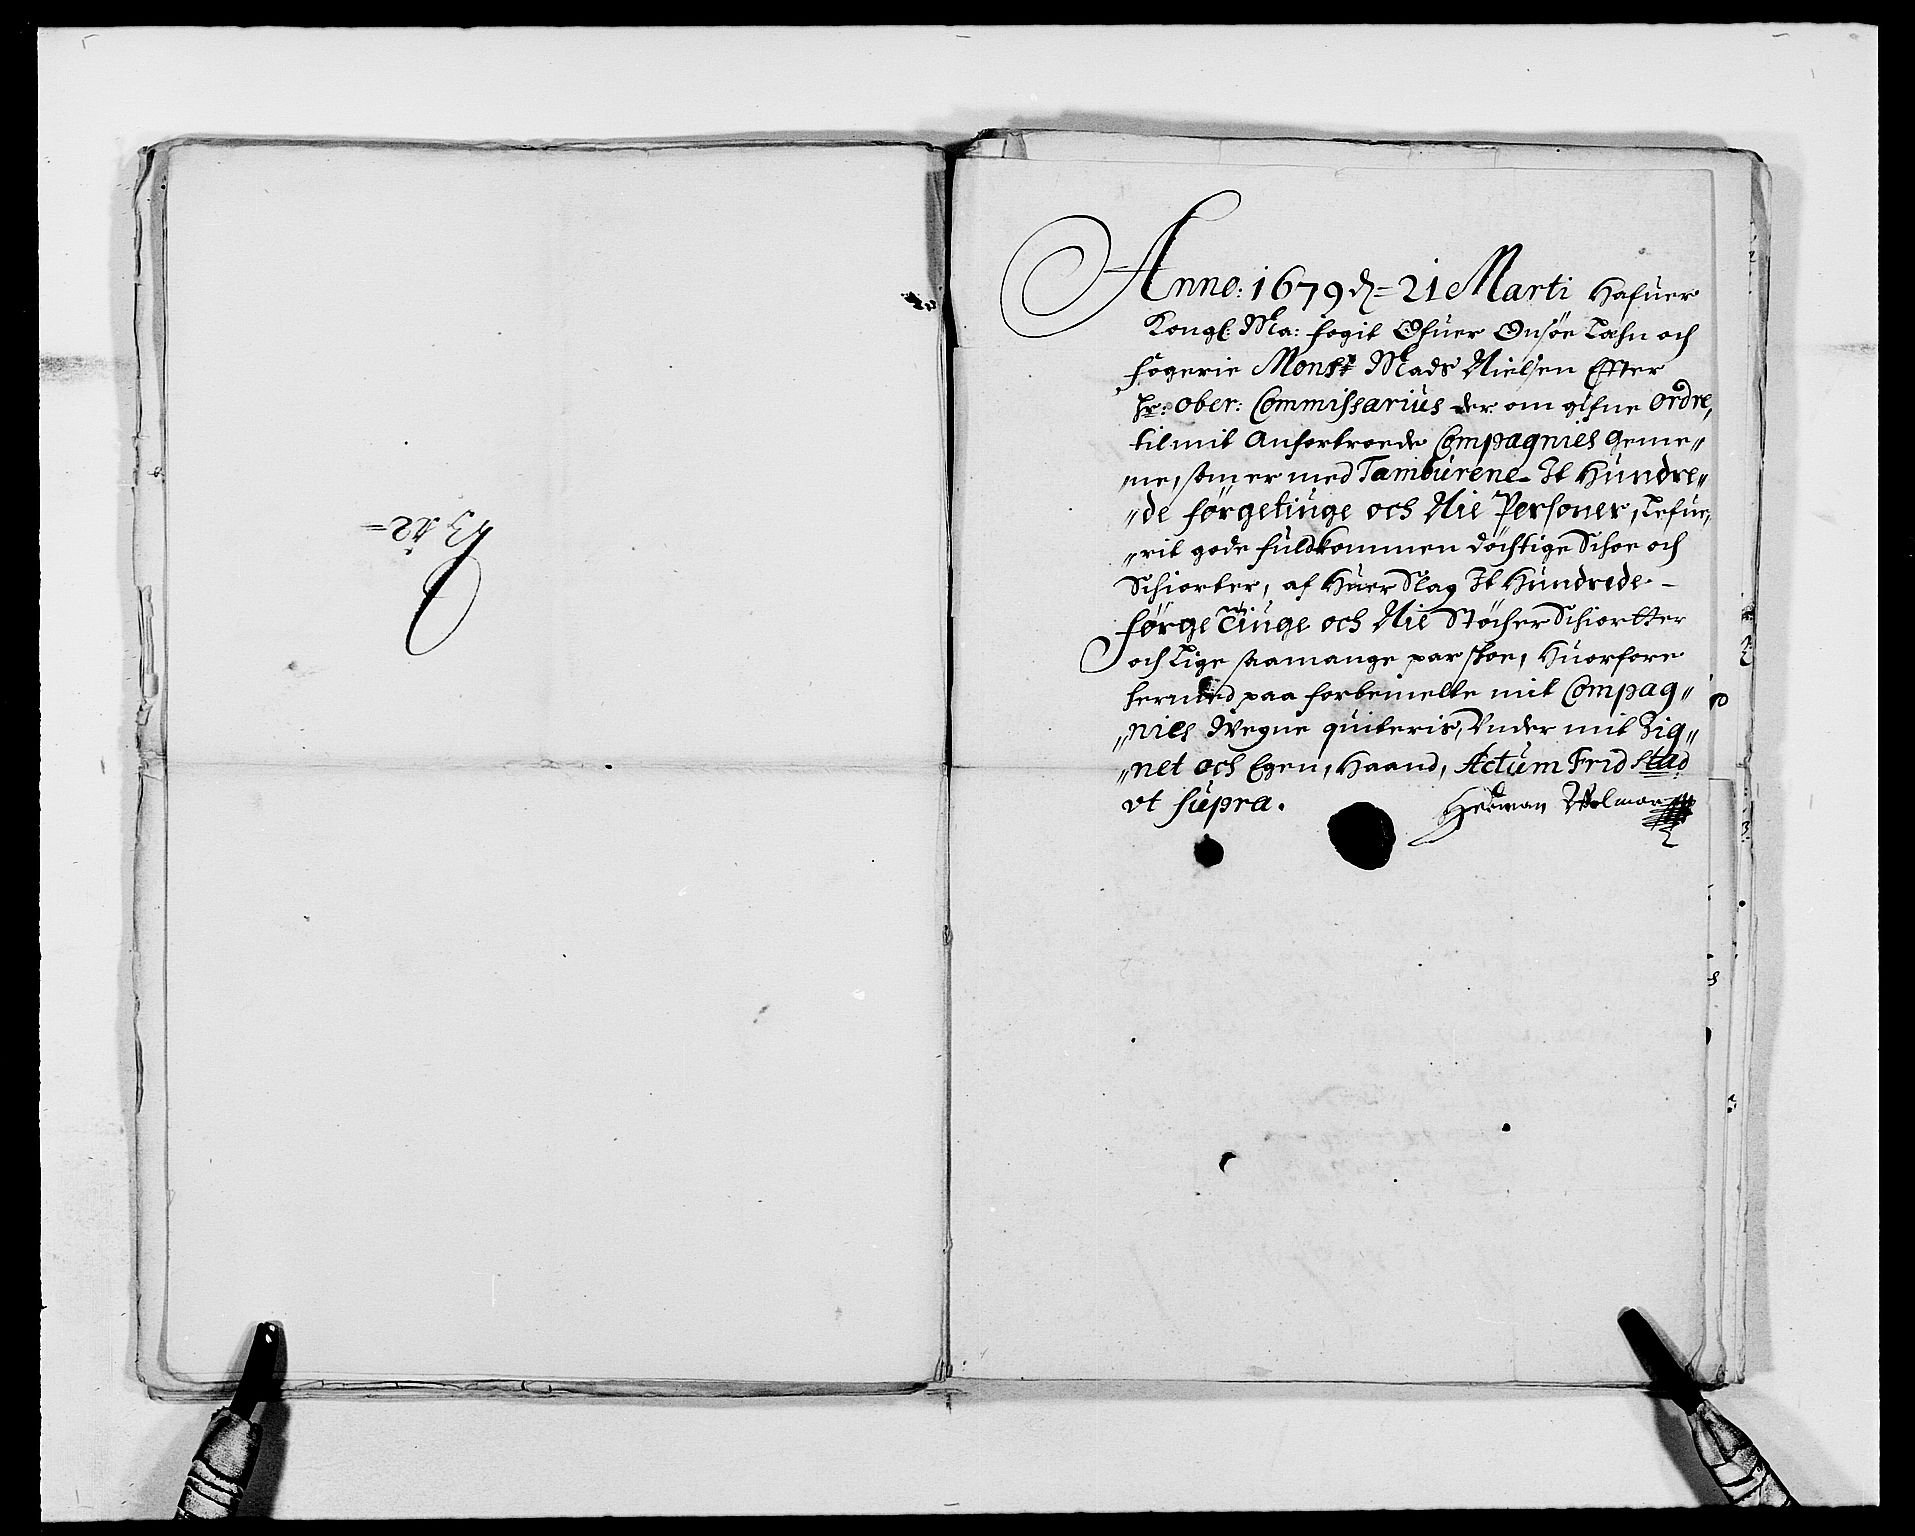 Anno: 1679 d = 21 Marti Hafuer
Kongl: Ma: fogit Ofuer Onsöe Læhn och
fögerie Monsr Mads Nielsen Effter
Hr: Ober: Commissarius der om gifne Ordre,
til mit Anfortroede Compagnies Geme„
„ne, som er med Tambúrene It Húndre„
„de førgetiúge och Nie Personer, Lefúe„
„rit gode fúldkommen döchtige Schoe och
Schiorter, af Húer Slag It Húndrede -
førgetiúge och Nie Stöcher Schiortter
och Lige saamange par skoe, Húorfore
hermed paa forbemelte mit Compag„
„nies Wegne quiteris, Vnder mit Zig„
„net och Egen, Haand, Actúm Fridstad
vt súpra.
Herman Wolmar